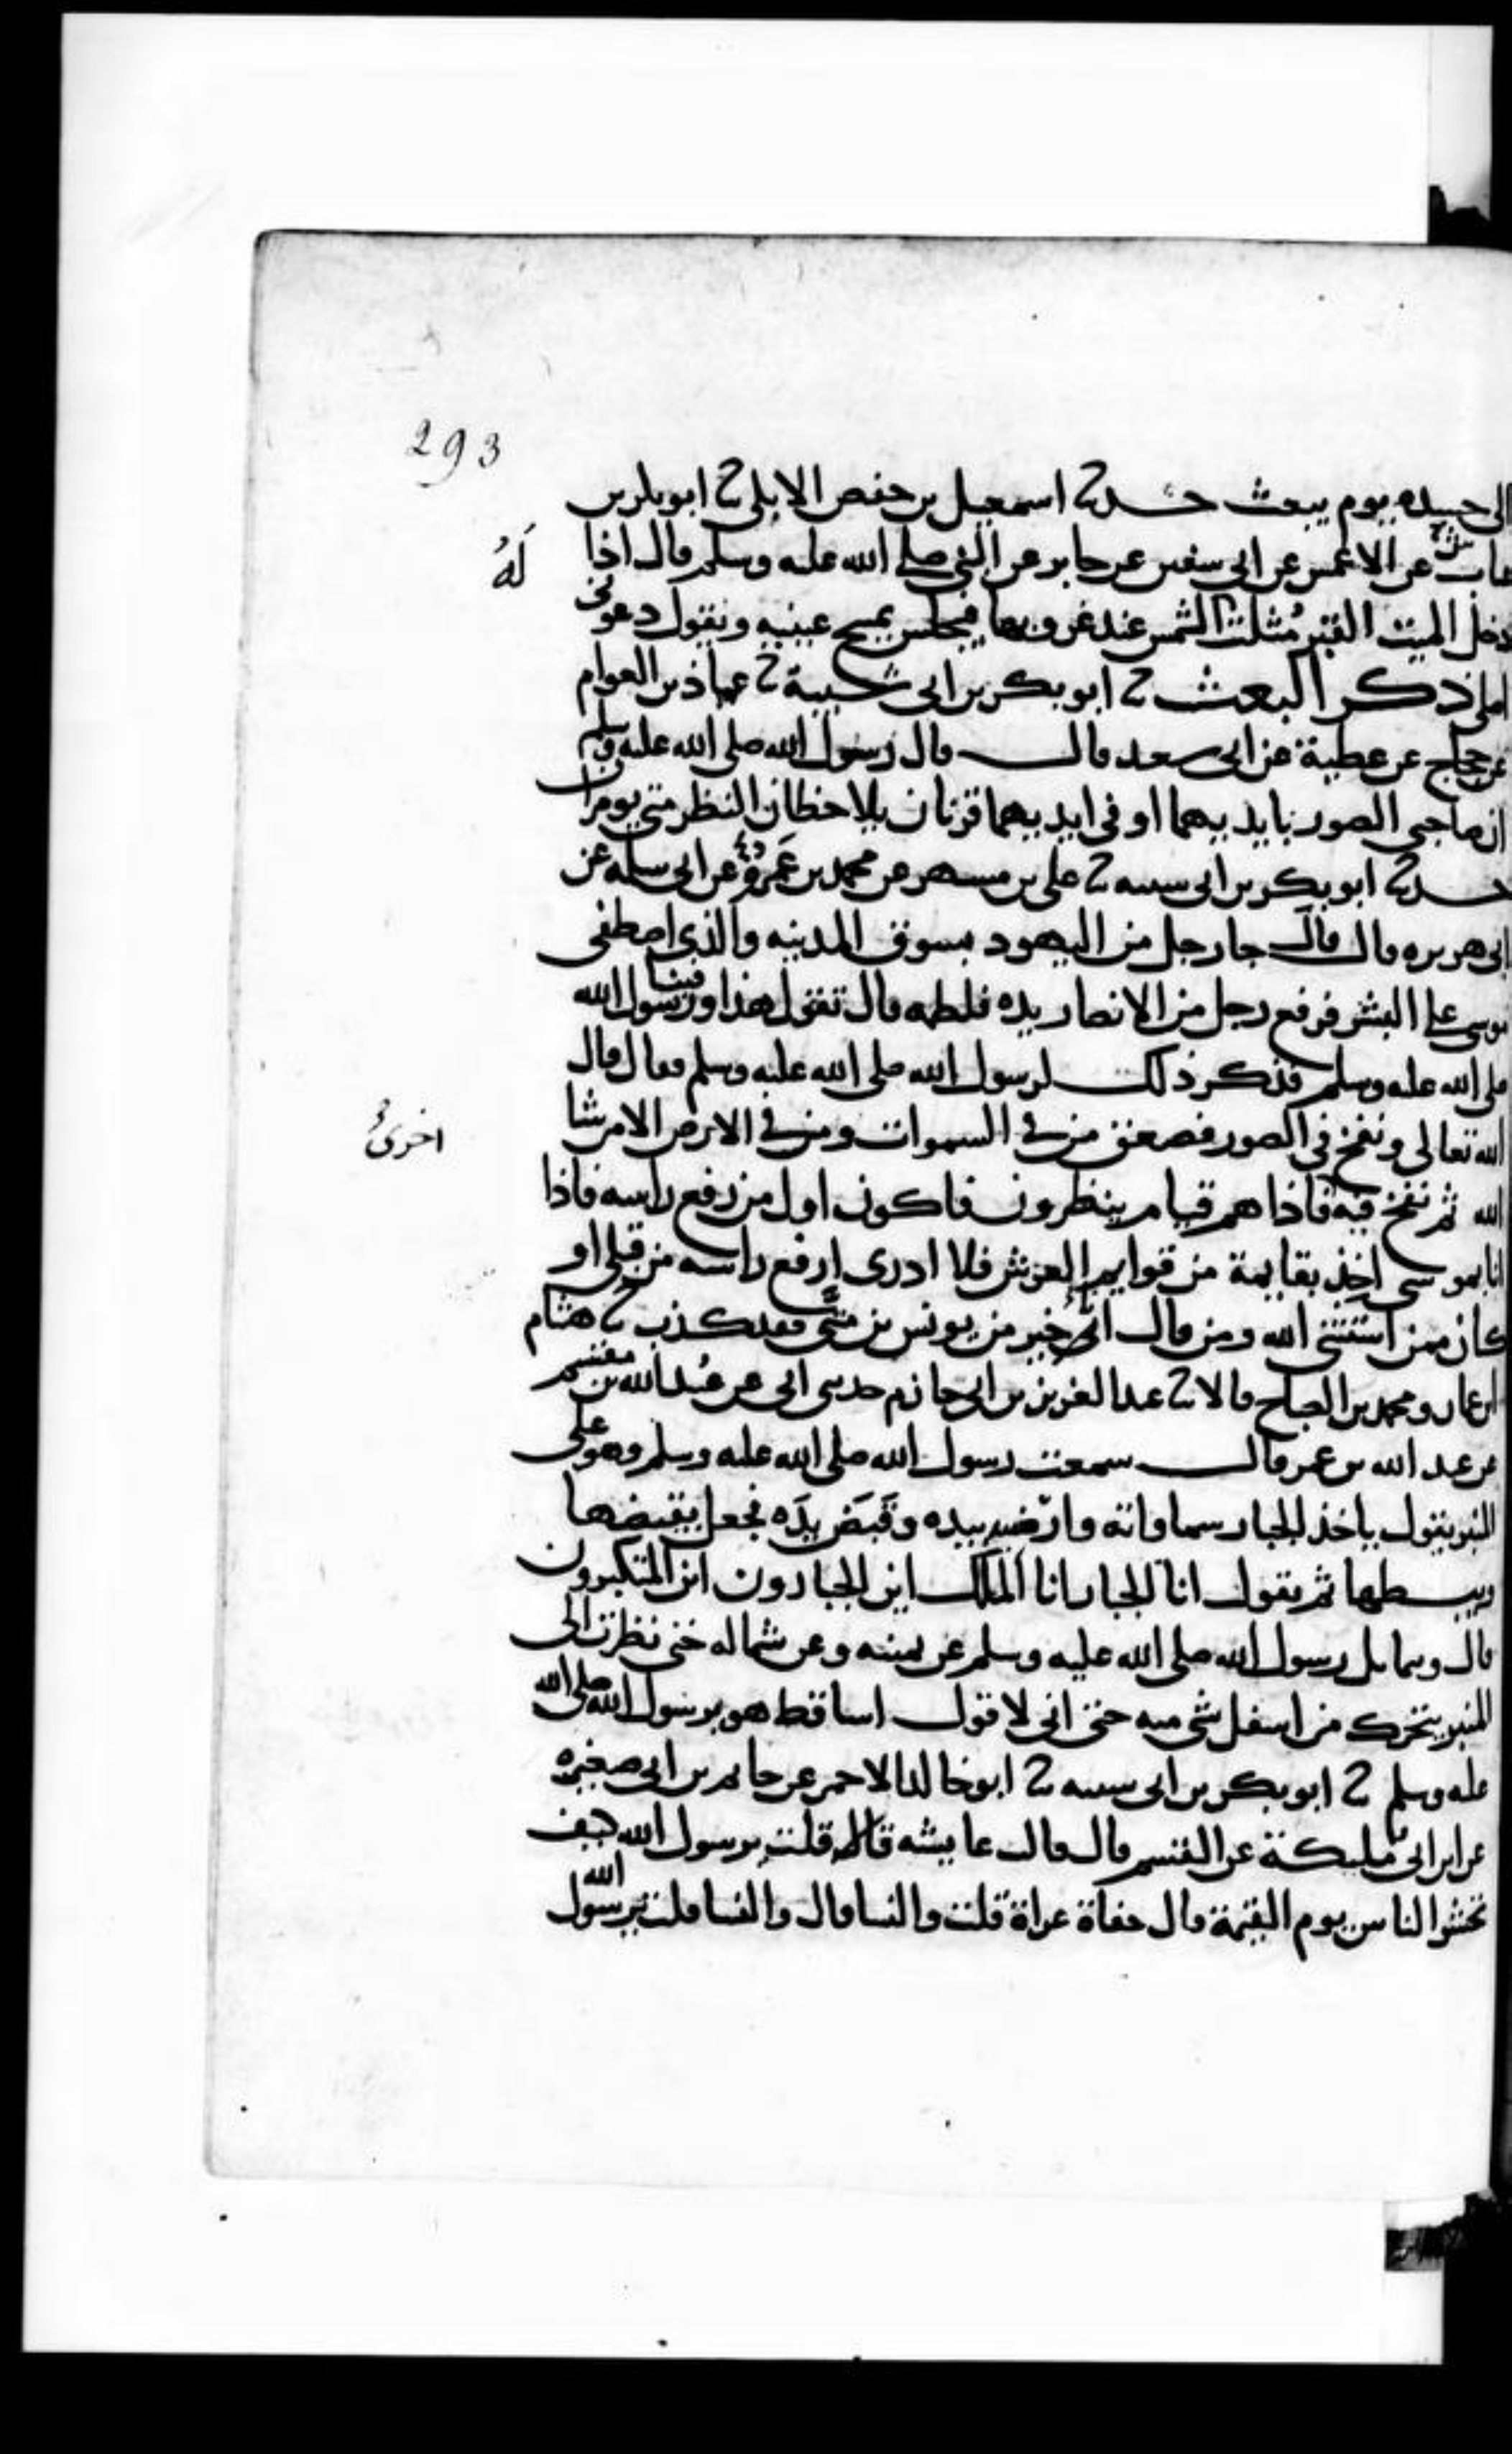 293
الى جسده يوم يبعث حدثنا اسمعيل بن حفص الابلي ثنا ابو بكر بن
عياش عن الاعمش عن ابي سفين عن جابر عن النبي صلى الله عليه وسلم قال اذا
له
دخل الميت القبر مثلت الشمس عند غروبها فيجلس يمسح عينيه ويقول دعوني
اصلي ذكر البعث ثنا ابو بكر بن ابي شيبة ثنا عباد بن العوام
عن حجاج عن عطية عن ابي سعيد قال قال رسول الله صلى الله عليه وسلم
ان صاحبي الصور بايديهما او في ايديهما قرنان يلاحظان النظر متى يومران
حدثنا ابو بكر بن ابي شيبه ثنا علي بن مسهر عن محمد بن عمرو عن ابي سلمه عن
ابي هريره قال قال جا رجل من اليهود بسوق المدينه والذي اصطفى
موسى على البشر فرفع رجل من الانصار يده فلطمه قال تقول هذا وفينا رسول الله
صلى الله عليه وسلم فذكر ذلك لرسول الله صلى الله عليه وسلم فقال قال
الله تعالى ونفخ في الصور فصعق من في السموات ومن في الارض الا من شا
اخرى
الله ثم نفخ فيه فاذا هم قيام ينظرون فاكون اول من رفع راسه فاذا
انا بموسى اخذ بقايمة من قوايم العرش فلا ادري ارفع راسه من قبلي او
كان ممن استثنى الله ومن قال اني خير من يونس بن متى فقد كذب ثنا هشام
ابن عمار ومحمد بن الصباح قالا ثنا عبد العزيز بن ابي حازم حدثني ابي عن عبيد الله بن مقسم
عن عبد الله بن عمر قال سمعت رسول الله صلى الله عليه وسلم وهو على
المنبر يقول ياخذ الجبار سماواته وارضيه بيده وقبض يده فجعل يقبضها
ويبسطها ثم يقول انا الجبار انا الملك اين الجبارون اين المتكبرون
قال ويتمايل رسول الله صلى الله عليه وسلم عن يمينه وعن شماله حتى نظرت الى
المنبر يتحرك من اسفل شي منه حتى اني لاقول اساقط هو برسول الله صلى الله
عليه وسلم ثنا ابو بكر بن ابي شيبه ثنا ابو خالد الاحمر عن حاتم بن ابي صغيره
عن ابن ابي مليكة عن القسم قال قالت عايشه قلت يرسول الله كيف
تحشر الناس يوم القيمة قال حفاة عراة قلت والنسا قال والنسا قلت يرسول الله